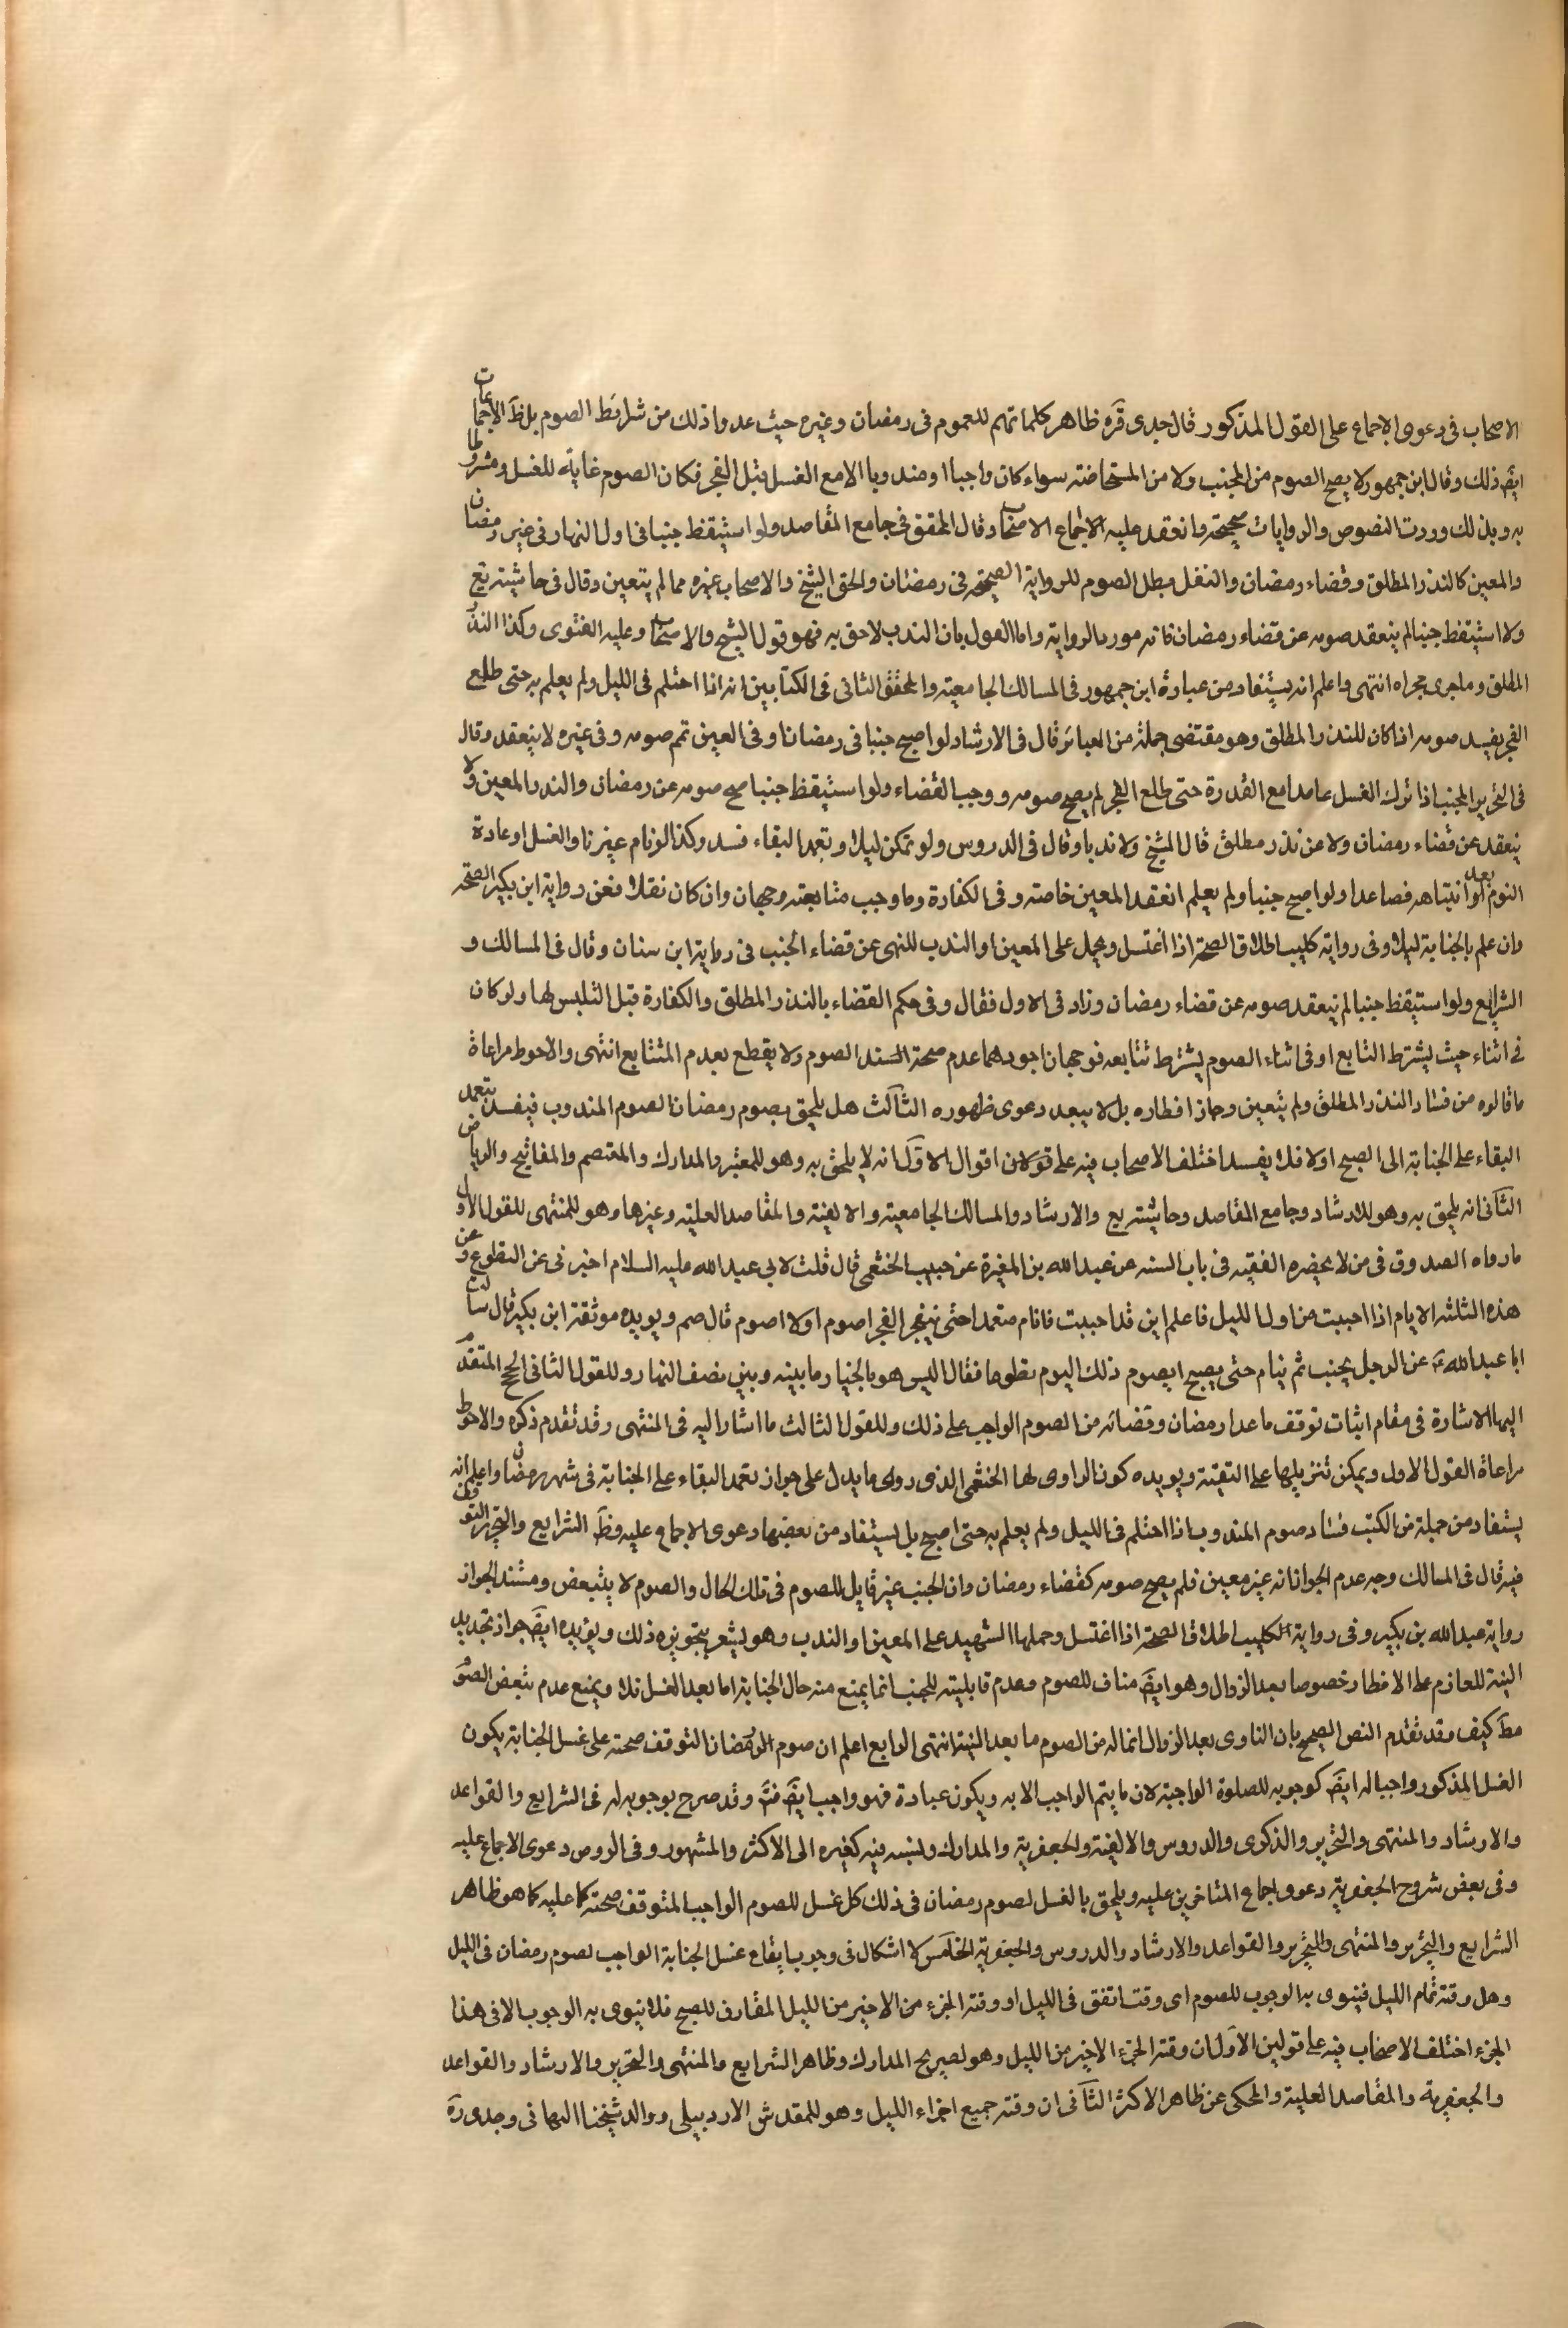 الاصحاب فى دعوى الاجماع على القول المذكور قال جدى قره ظاهر كلماتهم للعموم فى رمضان وغيره حيث عدوا ذلك من شرائط الصوم بل ظ الاجماعات
ايض ذلك وقال ابن جمهور لا يصح الصوم من الجنب ولا من المستحاضة سواء كان واجبا او مندوبا الا مع الغسل قبل الفجر فكان الصوم غاية للغسل ومشروطا
به وبذلك وردت النصوص والروايات صحيحة وانعقد عليه الاجماع الاصحاب وقال المحقق فى جامع المقاصد ولو استيقظ جنبا فى اول النهار فى غير رمضان
والمعين كالنذر المطلق وقضاء رمضان والنفل بطل الصوم للرواية الصحيحة فى رمضان والحق الشيخ والاصحاب غيره مما لم يتعين وقال فى حاشية يع
ولا استيقظ جنبا لم ينعقد صومه عن قضاء رمضان فانه مورد الرواية واما القول بان الندب لاحق به فهو قول الشيخ والاصحاب وعليه الفتوى وكذا النذر
المطلق وما جرى مجراه انتهى واعلم انه يستفاد من عبارة ابن جمهور فى المسالك الجامعية والمحقق الثانى فى الكتابين انه اذا احتلم فى الليل ولم يعلم به حتى طلع
الفجر يفسد صومه اذا كان للنذر المطلق وهو مقتضى جملة من العبائر قال فى الارشاد لو اصبح جنبا فى رمضان او فى المعين تم صومه وفى غيره لا ينعقد وقال
فى التحرير الجنب اذا ترك الغسل عامدا مع القدرة حتى طلع الفجر لم يصح صومه ووجب القضاء ولو استيقظ جنبا صح صومه عن رمضان والنذر المعين ولا
ينعقد عن قضاء رمضان ولا عن نذر مطلق قال الشيخ ولا ندبا وقال فى الدروس ولو تمكن ليلا وتعمد البقاء فسد وكذا لو نام غير ناو الغسل او عاده
النوم بعد انتباهه فصاعدا ولو اصبح جنبا ولم يعلم انعقد المعين خاصة وفى الكفارة وما وجب متابعته وجهان وان كان نفلا فعن رواية ابن بكير الصحة
وان علم بالجنابة ليلا وفى رواية كليب اطلاق الصحة اذا اغتسل ويحمل على المعين او الندب للنهى عن قضاء الجنب فى رواية ابن سنان وقال فى المسالك و
الشرايع ولو استيقظ جنبا لم ينعقد صومه عن قضاء رمضان وزاد فى الاول فقال وفى حكم القضاء بالنذر المطلق والكفارة قبل التلبس لها ولو كان
فى اثناء حيث يشترط التتابع او فى اثناء الصوم يشترط تتابعه فوجهان اجودهما عدم صحة السند الصوم ولا يقطع بعدم التتابع انتهى والاحوط مراعاة
ما قالوه من فساد النذر المطلق ولم يتعين وجاز افطاره بل لا يبعد دعوى ظهوره الثالث هل يلحق بصوم رمضان الصوم المندوب فيفسد بتعمد
البقاء على الجنابة الى الصبح او لا فلا يفسد اختلف الاصحاب فيه على قولان اقوال الاول انه لا يلحق به وهو للمعتبر والمدارك والمعتصم والمفاتيح والرياض
الثانى انه يلحق به وهو للارشاد وجامع المقاصد وحاشية يع والارشاد والمسالك الجامعية والالفية والمقاصد العلية وغيرها وهو للمنتهى للقول الاول
ما رواه الصدوق فى من لا يحضره الفقيه فى باب السنة عن عبد الله بن المغيرة عن حبيب الخثعمى قال قلت لابى عبد الله عليه السلام اخبرنى عن التطوع وعن
هذه الثلثة الايام اذا اجنبت من اول الليل فاعلم انى قد اجنبت فانام متعمدا حتى ينفجر الفجر اصوم او لا اصوم قال صم ويويده موثقة ابن بكير قال سالت
ابا عبد الله ع عن الرجل يجنب ثم ينام حتى يصبح ايصوم ذلك اليوم تطوعا فقال اليس هو بالخيار ما بينه وبين نصف النهار وللقول الثانى الحجج المتقدم
اليها الاشارة فى مقام اثبات توقف ما عدا رمضان وقضائه من الصوم الواجب على ذلك وللقول الثالث ما اشار اليه فى المنتهى وقد تقدم ذكره والاحوط
مراعاة القول الاول ويمكن تنزيلها على التقية ويويده كون الراوى لها الخثعمى الذى روى ما يدل على جواز تعمد البقاء على الجنابة فى شهر رمضان واعلم انه
يستفاد من جملة من الكتب فساد صوم المندوب اذا احتلم فى الليل ولم يعلم به حتى اصبح بل يستفاد من بعضها دعوى الاجماع عليه وظ الشرايع والتحرير التوقف
فيه قال فى المسالك وجه عدم الجواز انه غير معين فلم يصح صومه كقضاء رمضان وان الجنب غير قابل للصوم فى تلك الحال والصوم لا يتبعض ومستند الجواز
رواية عبد الله بن بكير وفى رواية الكليب اطلاق الصحة اذا اغتسل وحملها الشهيد على المعين او الندب وهو يشعر بتجويزه ذلك ويؤيده ايض جواز تجديد
النية للعازم على الافطار خصوصا بعد الزوال وهو ايض مناف للصوم وعدم قابليته للجنب انما يمنع منه حال الجنابة اما بعد الغسل فلا ويمنع عدم تبعض الصوم
مط كيف وقد تقدم النص الصحيح بان الناوى بعد الزوال انما له من الصوم ما بعد النية انتهى الرابع اعلم ان صوم الرمضان التوقف صحته على غسل الجنابة يكون
الغسل المذكور واجبا له ايض كوجوبه للصلوة الواجبة لان ما يتم الواجب الا به ويكون عبادة فهو واجب ايض وقد صرح بوجوبه له فى الشرايع والقواعد
والارشاد والمنتهى والتحرير والذكرى والدروس والالفية والجعفرية والمدارك ونسبه فيه كغيره الى الاكثر والمشهور وفى الروض دعوى الاجماع عليه
وفى بعض شروح الجعفرية دعوى اجماع المتاخرين عليه ويلحق بالغسل لصوم رمضان فى ذلك كل غسل للصوم الواجب المتوقف صحته كما عليه كما هو ظاهر
الشرايع والتحرير والمنتهى والتحرير والقواعد والارشاد والدروس والجعفرية الخامس لا اشكال فى وجوب ايقاع غسل الجنابة الواجب لصوم رمضان فى الليل
وهل وقته تمام الليل فينوى به الوجوب للصوم اى وقت اتفق فى الليل او وقته الجزء من الاخير من الليل المقارن للصبح فلا ينوى به الوجوب الا فى هذا
الجزء اختلف الاصحاب فيه على قولين الاول ان وقته الجزء الاخير من الليل وهو لصريح المدارك وظاهر الشرايع والمنتهى والتحرير والارشاد والقواعد
والجعفرية والمقاصد العلية والمحكى عن ظاهر الاكثر الثانى ان وقته جميع اجزاء الليل وهو للمقدس الاردبيلى ووالد شيخنا البهائى وجدى ره